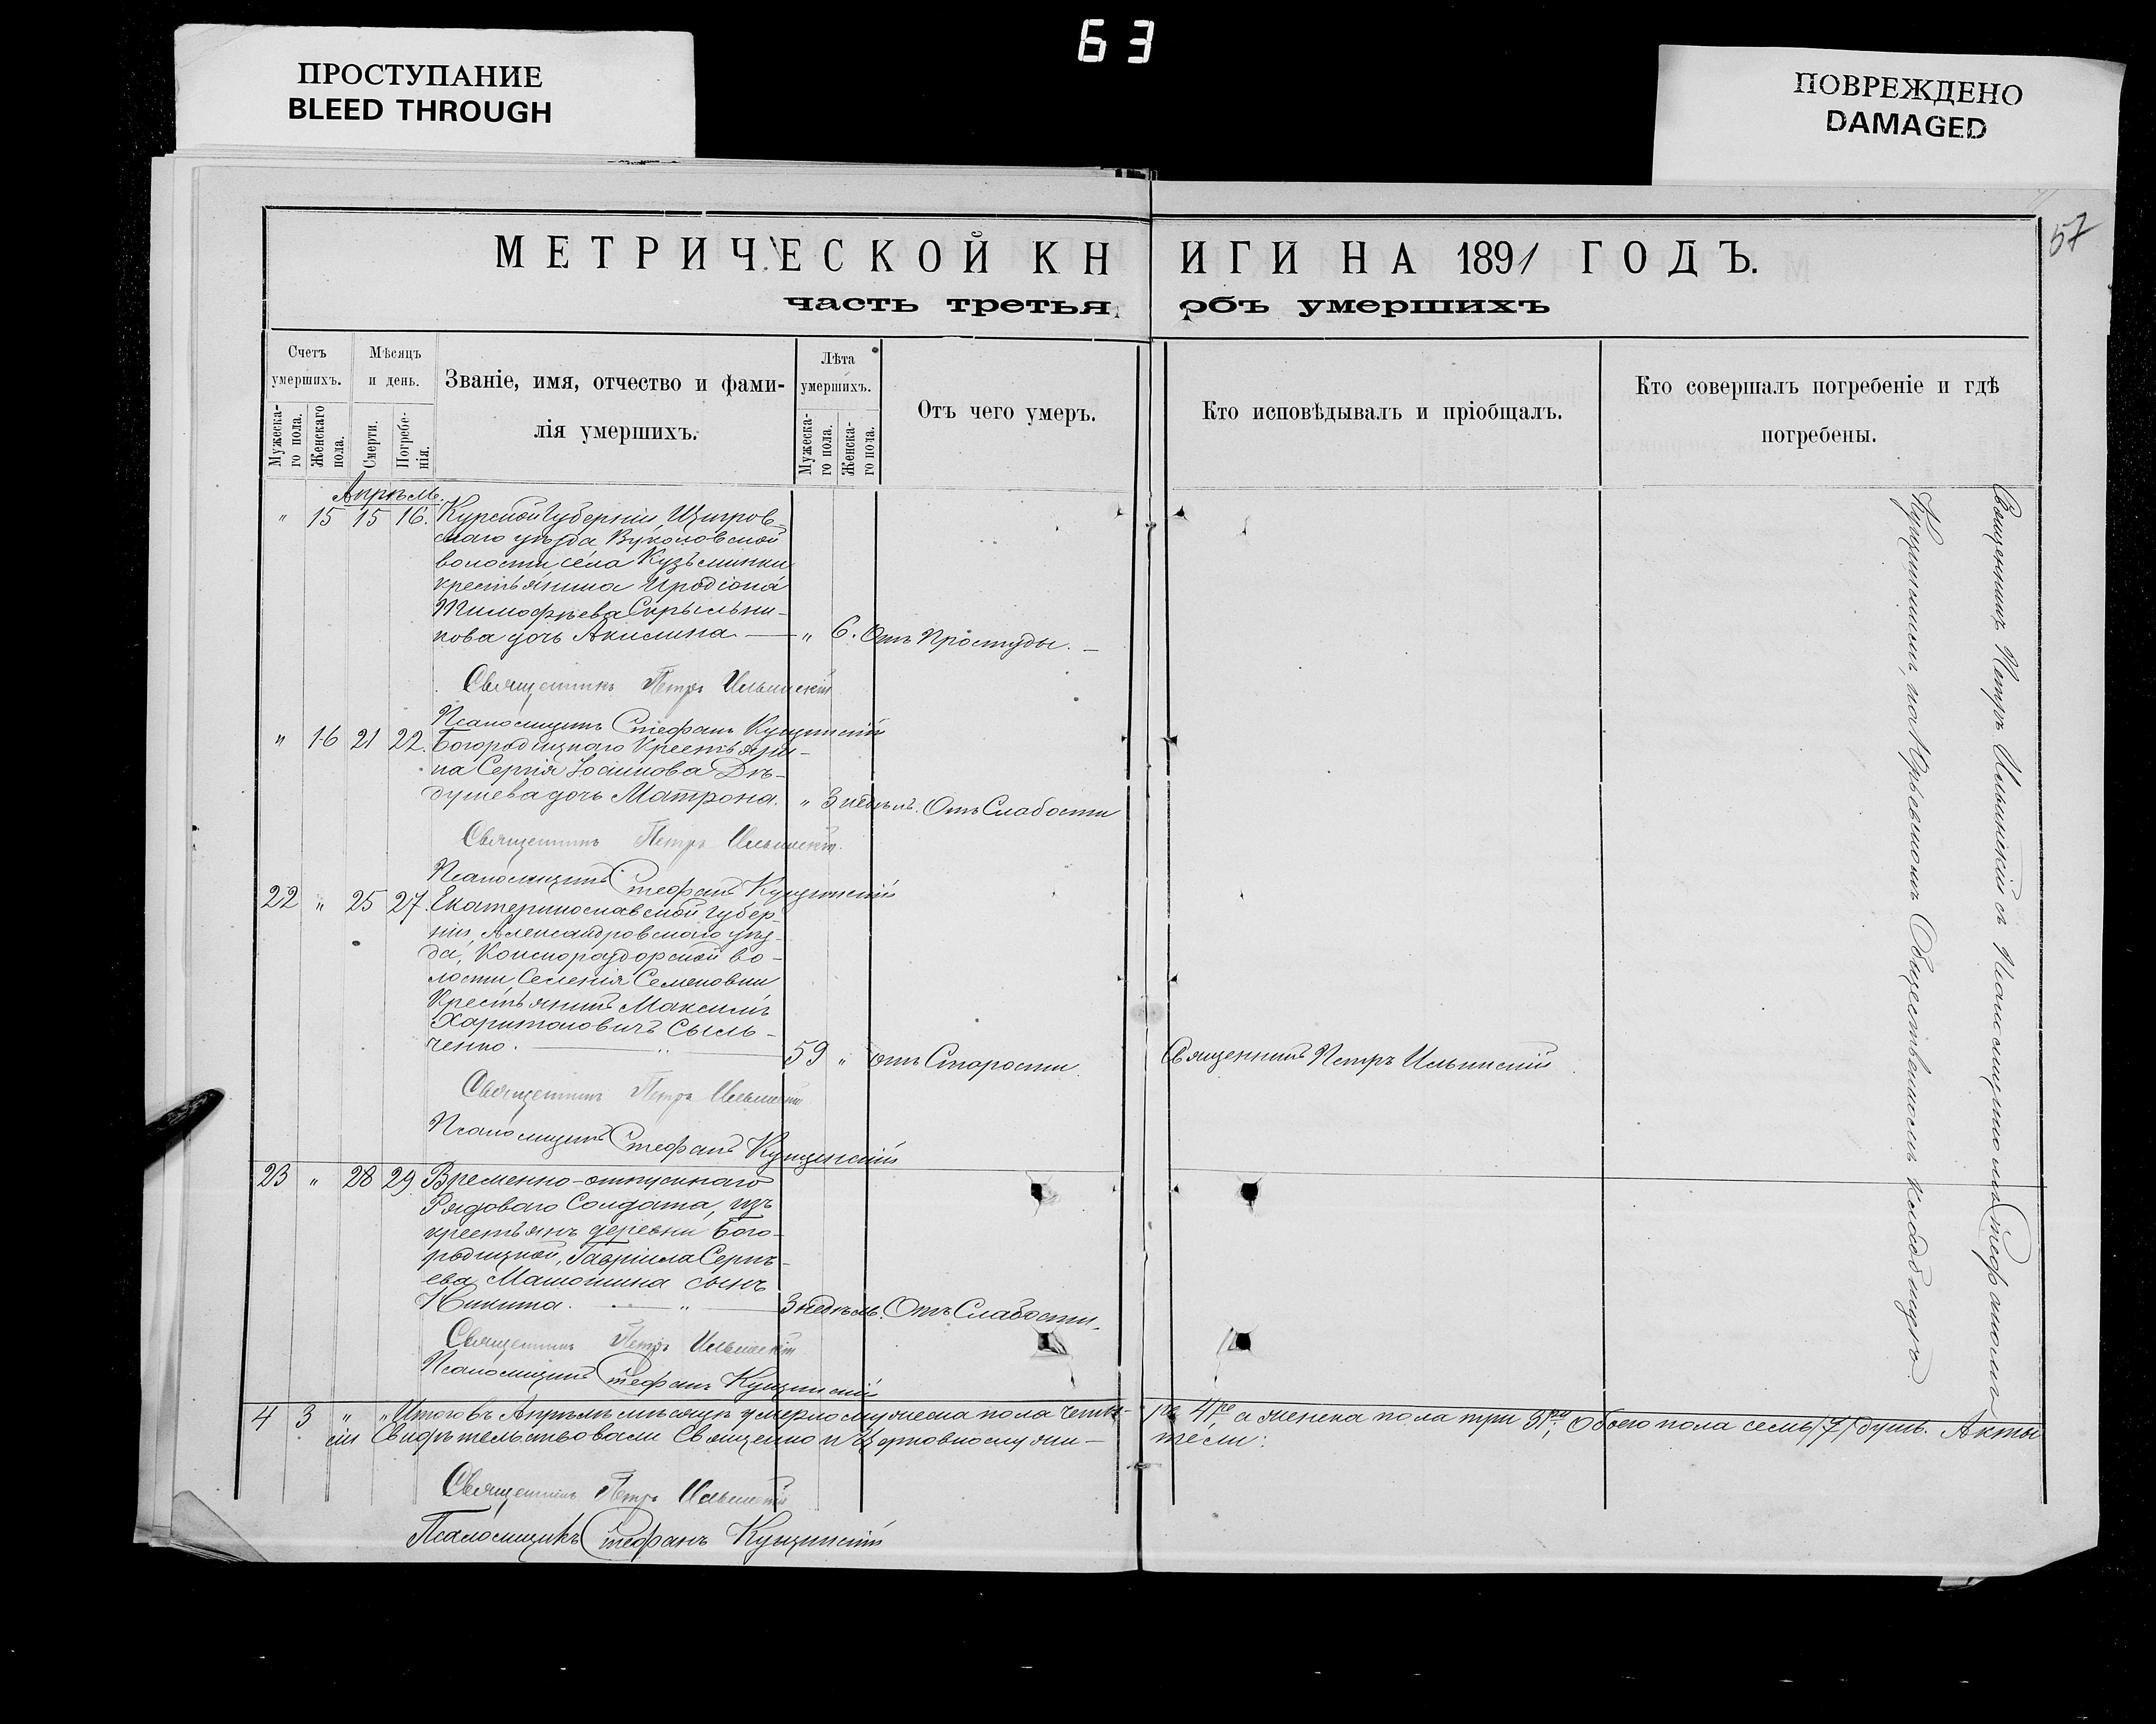 63
ПРОСТУПАНИЕ
BLEED THROUGH
ПОВРЕЖДЕНО
DAMAGED
57
МЕТРИЧЕСКОЙ КНИГИ НА 1891 ГОДЪ.
часть третья объ умершихъ
Счетъ умершихъ.
Мужеска-
го пола.
Женскаго
пола.
Мѣсяцъ и день.
Смерти.
Погребе-
нія.
Званіе, имя, отчество и фами-
лія умершихъ.
Лѣта умершихъ.
Мужеска-
го пола.
Женска-
го пола.
Отъ чего умеръ.
Кто исповѣдывалъ и пріобщалъ.
Кто совершалъ погребеніе и гдѣ
погребены.
Апрѣль.
" 15 15 16. Курской Губерніи, Щигров-
скаго уѣзда Вуколовской
волости, села Кузьминки
крестьянина Иродіона
Тимофѣева Скрыльни-
кова дочь Акилина. — " 6. Отъ Простуды. —
Священникъ Петръ Ильинскій
Псаломщикъ Стефанъ Кущинскій
" 16 21 22. Богородицкаго Крестьяни-
на Сергія Іоаннова Дѣ-
душева дочь Матрона. " 3 недѣль. Отъ Слабости
Священникъ Петръ Ильинскій.
Псаломщикъ Стефанъ Кущинскій
22 " 25 27. Екатеринославской Губер-
ніи, Александровскаго уѣз-
да, Конскораздорской во-
лости Селенія Семеновки
Крестьянинъ Максимъ
Харитоновичъ Сыль-
ченко. — " — 59 " отъ Старости. Священникъ Петръ Ильинскій
Священникъ Петръ Ильинскій
Псаломщикъ Стефанъ Кущинскій
23 " 28 29 Временно-отпускнаго
Рядоваго Солдата, изъ
крестьянъ деревни Бого-
родицкой, Гавріила Сергѣ-
ева Матюшина сынъ
Никита. — " — 3 недѣль. Отъ Слабости.
Священникъ Петръ Ильинскій
Псаломщикъ Стефанъ Кущинскій
Священникъ Петръ Ильинскій съ Псаломщикомъ Стефаномъ
Кущинскимъ, на Общественномъ кладбищѣ
4 3 " " Итого въ Апрѣлѣ мѣсяцѣ умерло мужеска пола четы-
ре 4ре, а женска пола три 3ри, Обоего пола семь /7/ душъ. Акты
сіи Свидѣтельствовали Священно и Церковнослужи-
тели:
Священникъ Петръ Ильинскій
Псаломщикъ Стефанъ Кущинскій